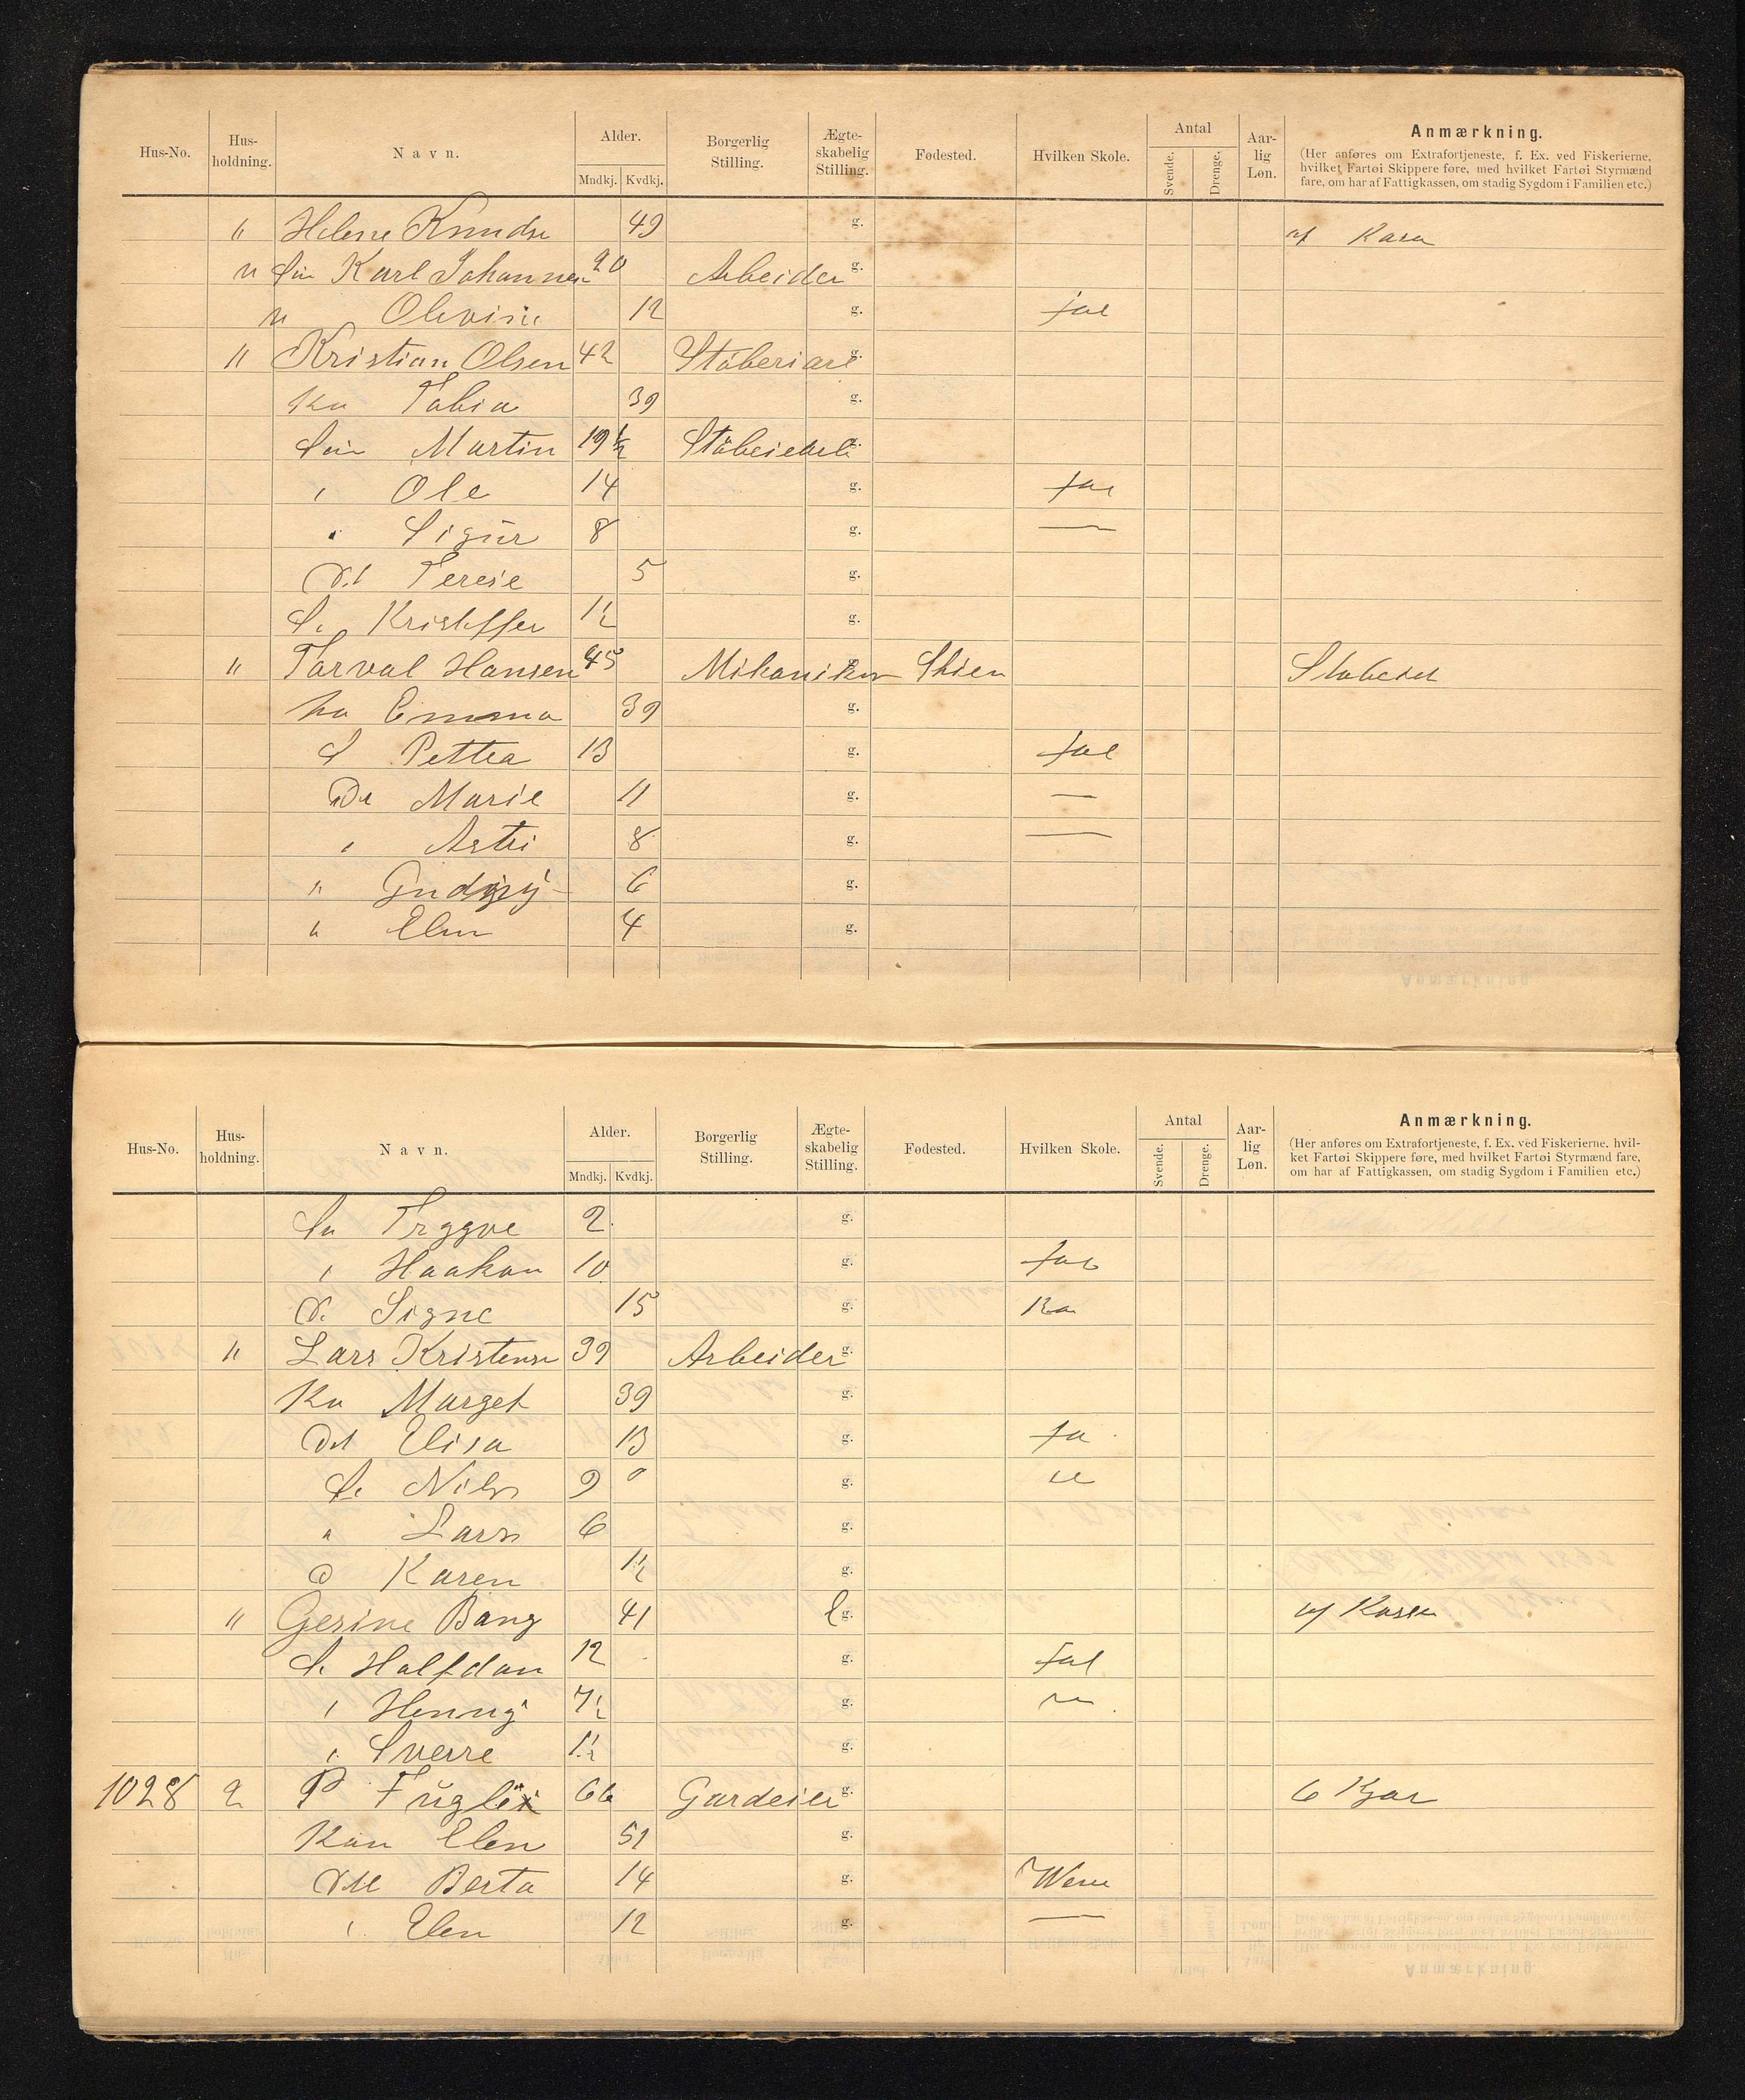 Hus-No. Hus-holdning. Navn. Alder. Mndkj. Kvdkj. Borgerlig Stilling. Ægte-skabelig Stilling. Fødested. Hvilken Skole. Antal Svende. Drenge. Aar-lig Løn. Anmærkning.
(Her anføres om Extrafortjeneste, f. Ex. ved Fiskerierne,
hvilket Fartøi Skippere føre, med hvilket Fartøi Styrmænd
fare, om har af Fattigkassen, om stadig Sygdom i Familien etc.)
" Helene Knudse 49 g. af Kasa
" Karl Johannes 20 Arbeider g.
" Olevine 12 g.
" Kristian Olsen 42 g.
Ko Tobia 39 g.
Søn Martin 19½ g.
" Ole 14 g.
" Sigur 8 g. —
Terese 5 g.
S. 1½ g.
" Torval Hansen 45 Mikaniker g. Skien
ko Emma 39 g.
S Pettea 13 g.
Da Marie 11 g. —
" Astri 8 g. —
" 6 g.
" Elen 4 g.
Hus-No. Hus-holdning. Navn. Alder. Mndkj. Kvdkj. Borgerlig Stilling. Ægte-skabelig Stilling. Fødested. Hvilken Skole. Antal Svende. Drenge. Aar-lig Løn. Anmærkning.
(Her anføres om Extrafortjeneste, f. Ex. ved Fiskerierne, hvil-
ket Fartøi Skippere føre, med hvilket Fartøi Styrmænd fare,
om har af Fattigkassen, om stadig Sygdom i Familien etc.)
Trygve 2 g.
" Haakon 10 g.
D. Signe 15 g.
" Lars Kristense 39 Arbeider g.
Ko Marget 39 g.
Dat Elisa 13 g.
S. Nils 9 g.
" Lars 6 g.
D Karen 1½ g.
" Gesine Bang 41 g. af Kasse
S. Halfdan 12 g.
" Henny 7½ g.
" Sverre 1½ g.
1028 2 P Fuglei 66 Gardeier g. 6 Kjør
Kon Elen 51 g.
Berta 14 g.
" Elen 12 g. —